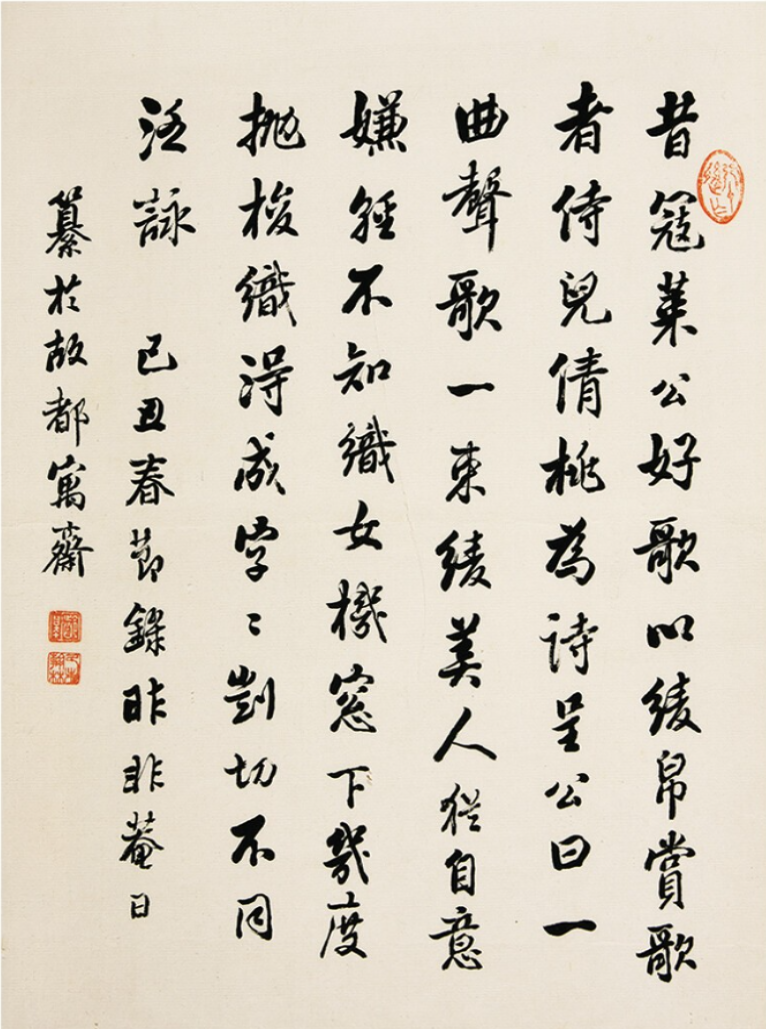 昔寇莱公好歌以綾帛賞歌
者侍兒倩桃為詩呈公曰一
曲聲歌一束綾美人猶自意
嫌輕不知織女機窓下幾度
拋梭織得成字〻剴切不同
泛詠
己丑春節錄昨非菴日
纂於故都寓齋